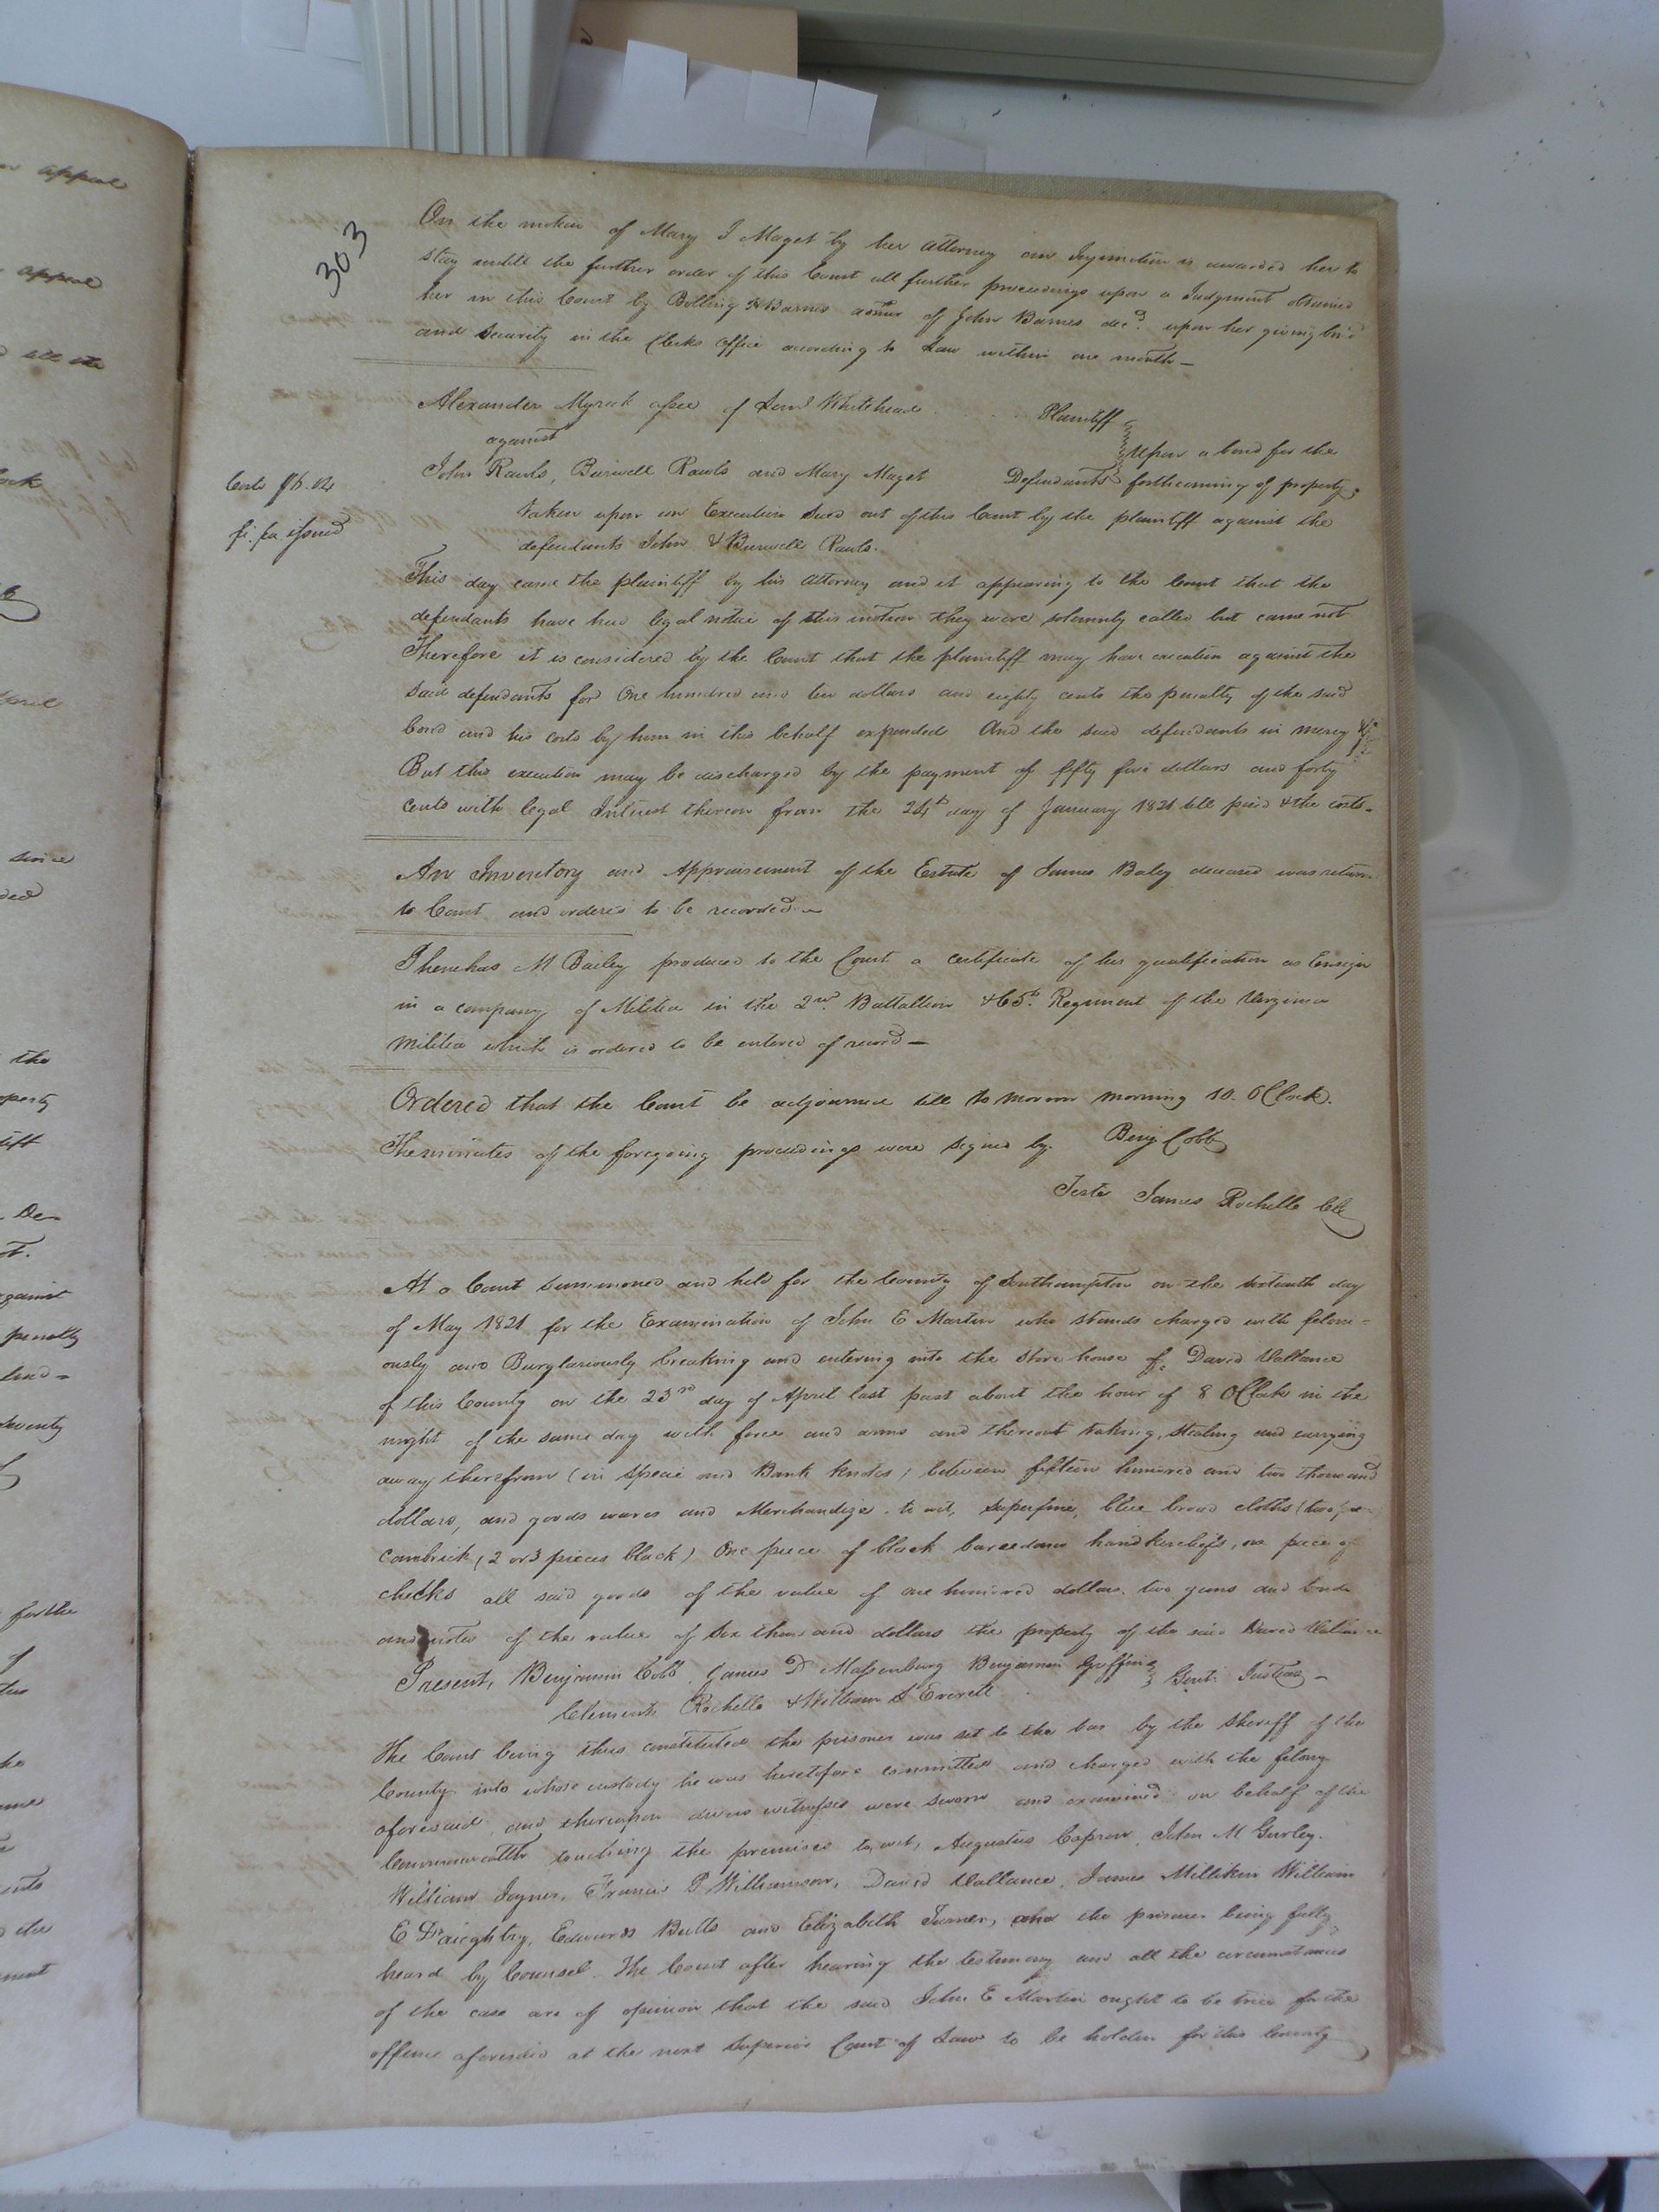 303
On the motion of Mary I Maget by her attorney an Injunction is awarded her to
stay untill the further order of this Court all further proceedings upon a Judgment obtained
her in this Court by Bolling H Barnes admr of John Barnes decd. upon her giving bond
and security in the Clerks office according to Law within one month—
Alexander Myrick assee of Saml Whitehead Plaintiff
against
Upon a bond for the
John Rawls, Burwell Rawls and Mary Maget Defendants forthcoming of property,
Costs $6.04
fi. fa issued
taken upon an Execution Sued out of this Court by the plaintiff against the
defendants John & Burwell Rawls.
This day came the plaintiff by his attorney and it appearing to the Court that the
defendants have had legal notice of this motion they were solemnly called but came not
Therefore it is considered by the Court that the plaintiff may have execution against the
said defendants for One hundred and ten dollars and eighty cents the penalty of the said
bond and his costs by him in this behalf expended And the said defendants in mercy &c
But this execution may be discharged by the payment of fifty five dollars and forty
cents with legal Interest thereon from the 24th day of January 1821 till paid & the costs—
An Inventory and Appraisement of the Estate of James Baley deceased was return
to Court and ordered to be recorded—
Phenehas M Bailey produced to the Court a certificate of his qualification as Ensign
in a company of Militia in the 2nd. Battallion & 65th. Regiment of the Virginia
Militia which is ordered to be entered of record—
Ordered that the Court be adjourned till to morrow morning 10. OClock.
The minutes of the foregoing proceedings were signed by. Benj Cobb
Teste James Rochelle Clk
At a Court summoned and held for the County of Southampton on the sixteenth day
of May 1821 for the Examination of John E Martin who stands charged with feloni=
ously and Burglariously breaking and entering into the Store house of David Vallance
of this County on the 23rd day of April last past about the hour of 8 OClock in the
night of the same day with force and arms and thereout taking, Stealing and carrying
away therefrom (in Specie and Bank Notes) between fifteen hundred and two thousand
dollars, and goods wares and Merchandize. to wit, superfine, blue broad cloths (two
Cambrick (2 or 3 pieces black) One piece of black handkerchiefs, one piece of
checks all said goods of the value of one hundred dollars. two guns and bonds
and notes of the value of Six thousand dollars the property of the said David Vallance
Present, Benjamin Cobb, James D Massenburg Benjamin Griffin Gent: Justices—
Clements Rochelle & William S Everett
The Court being thus constituted the prisoner was set to the bar by the Sheriff of the
County into whose custody he was heretofore committed and charged with the felony
aforesaid, and thereupon divers witnesses were sworn and examined on behalf of the
Commonwealth touching the premises to, wit, Augustus Capron, John M Gurley.
William Joyner, Francis P Williamson, David Vallance, James Milliken William
E Daughtry, Edwards Butts and Elizabeth Turner, and the prisoner being fully
heard by Counsel. The Court after hearing the testimony and all the circumstances
of the case are of opinion that the said John E Martin ought to be tried for the
offence aforesaid at the next Superior Court of Law to be holden for this County